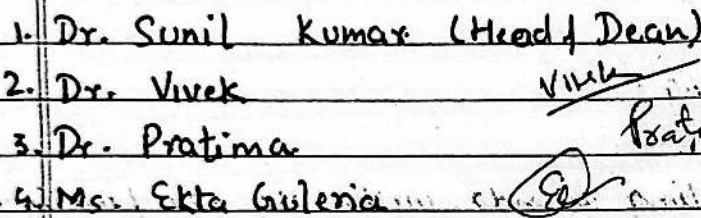 1. Dr. Sunil Kumar (Head & Dean)
2. Dr. Vivek Vivek
3. Dr. Pratima Prati
4. Ms. Ekta Guleria